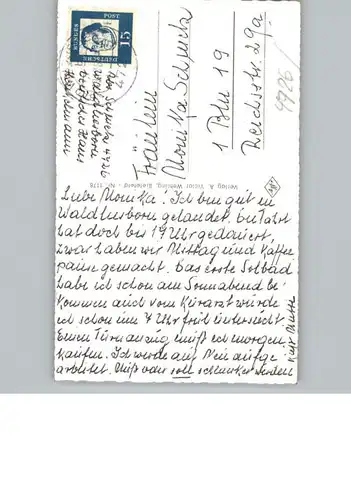 15
DEUTSCHE
BUNDESPOST
Fräulein
Monika
1 Bln 19
Reichsstr. 29a
4926
Verlag A. Victor Wehling, Bielefeld - Nr. 1178
Liebe Monika! Ich bin gut in
Waldliesborn gelandet. Die Fahrt
hat doch bis 19 Uhr gedauert,
zwar haben wir Mittag und Kaffee
pause gemacht. Das erste Solbad
habe ich schon am Sonnabend be-
kommen auch vom Kurarzt wurde
ich schon um 7 Uhr früh untersucht
Einen Turnanzug muß ich morgen
kaufen. Ich werde auf Neu aufge-
arbeitet. Muß oder soll schlanker werden